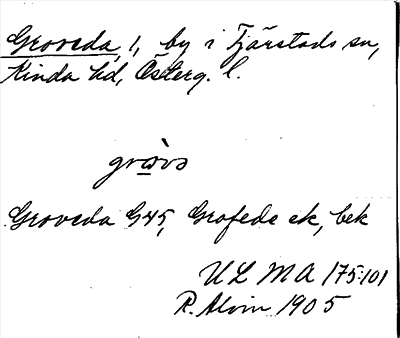 Groveda, 1, by i Tjärstads sn,
Kinda hd, Österg. l.
Groveda G45, Grofede ek, bek
ULMA 175:101
R. Alvin 1905